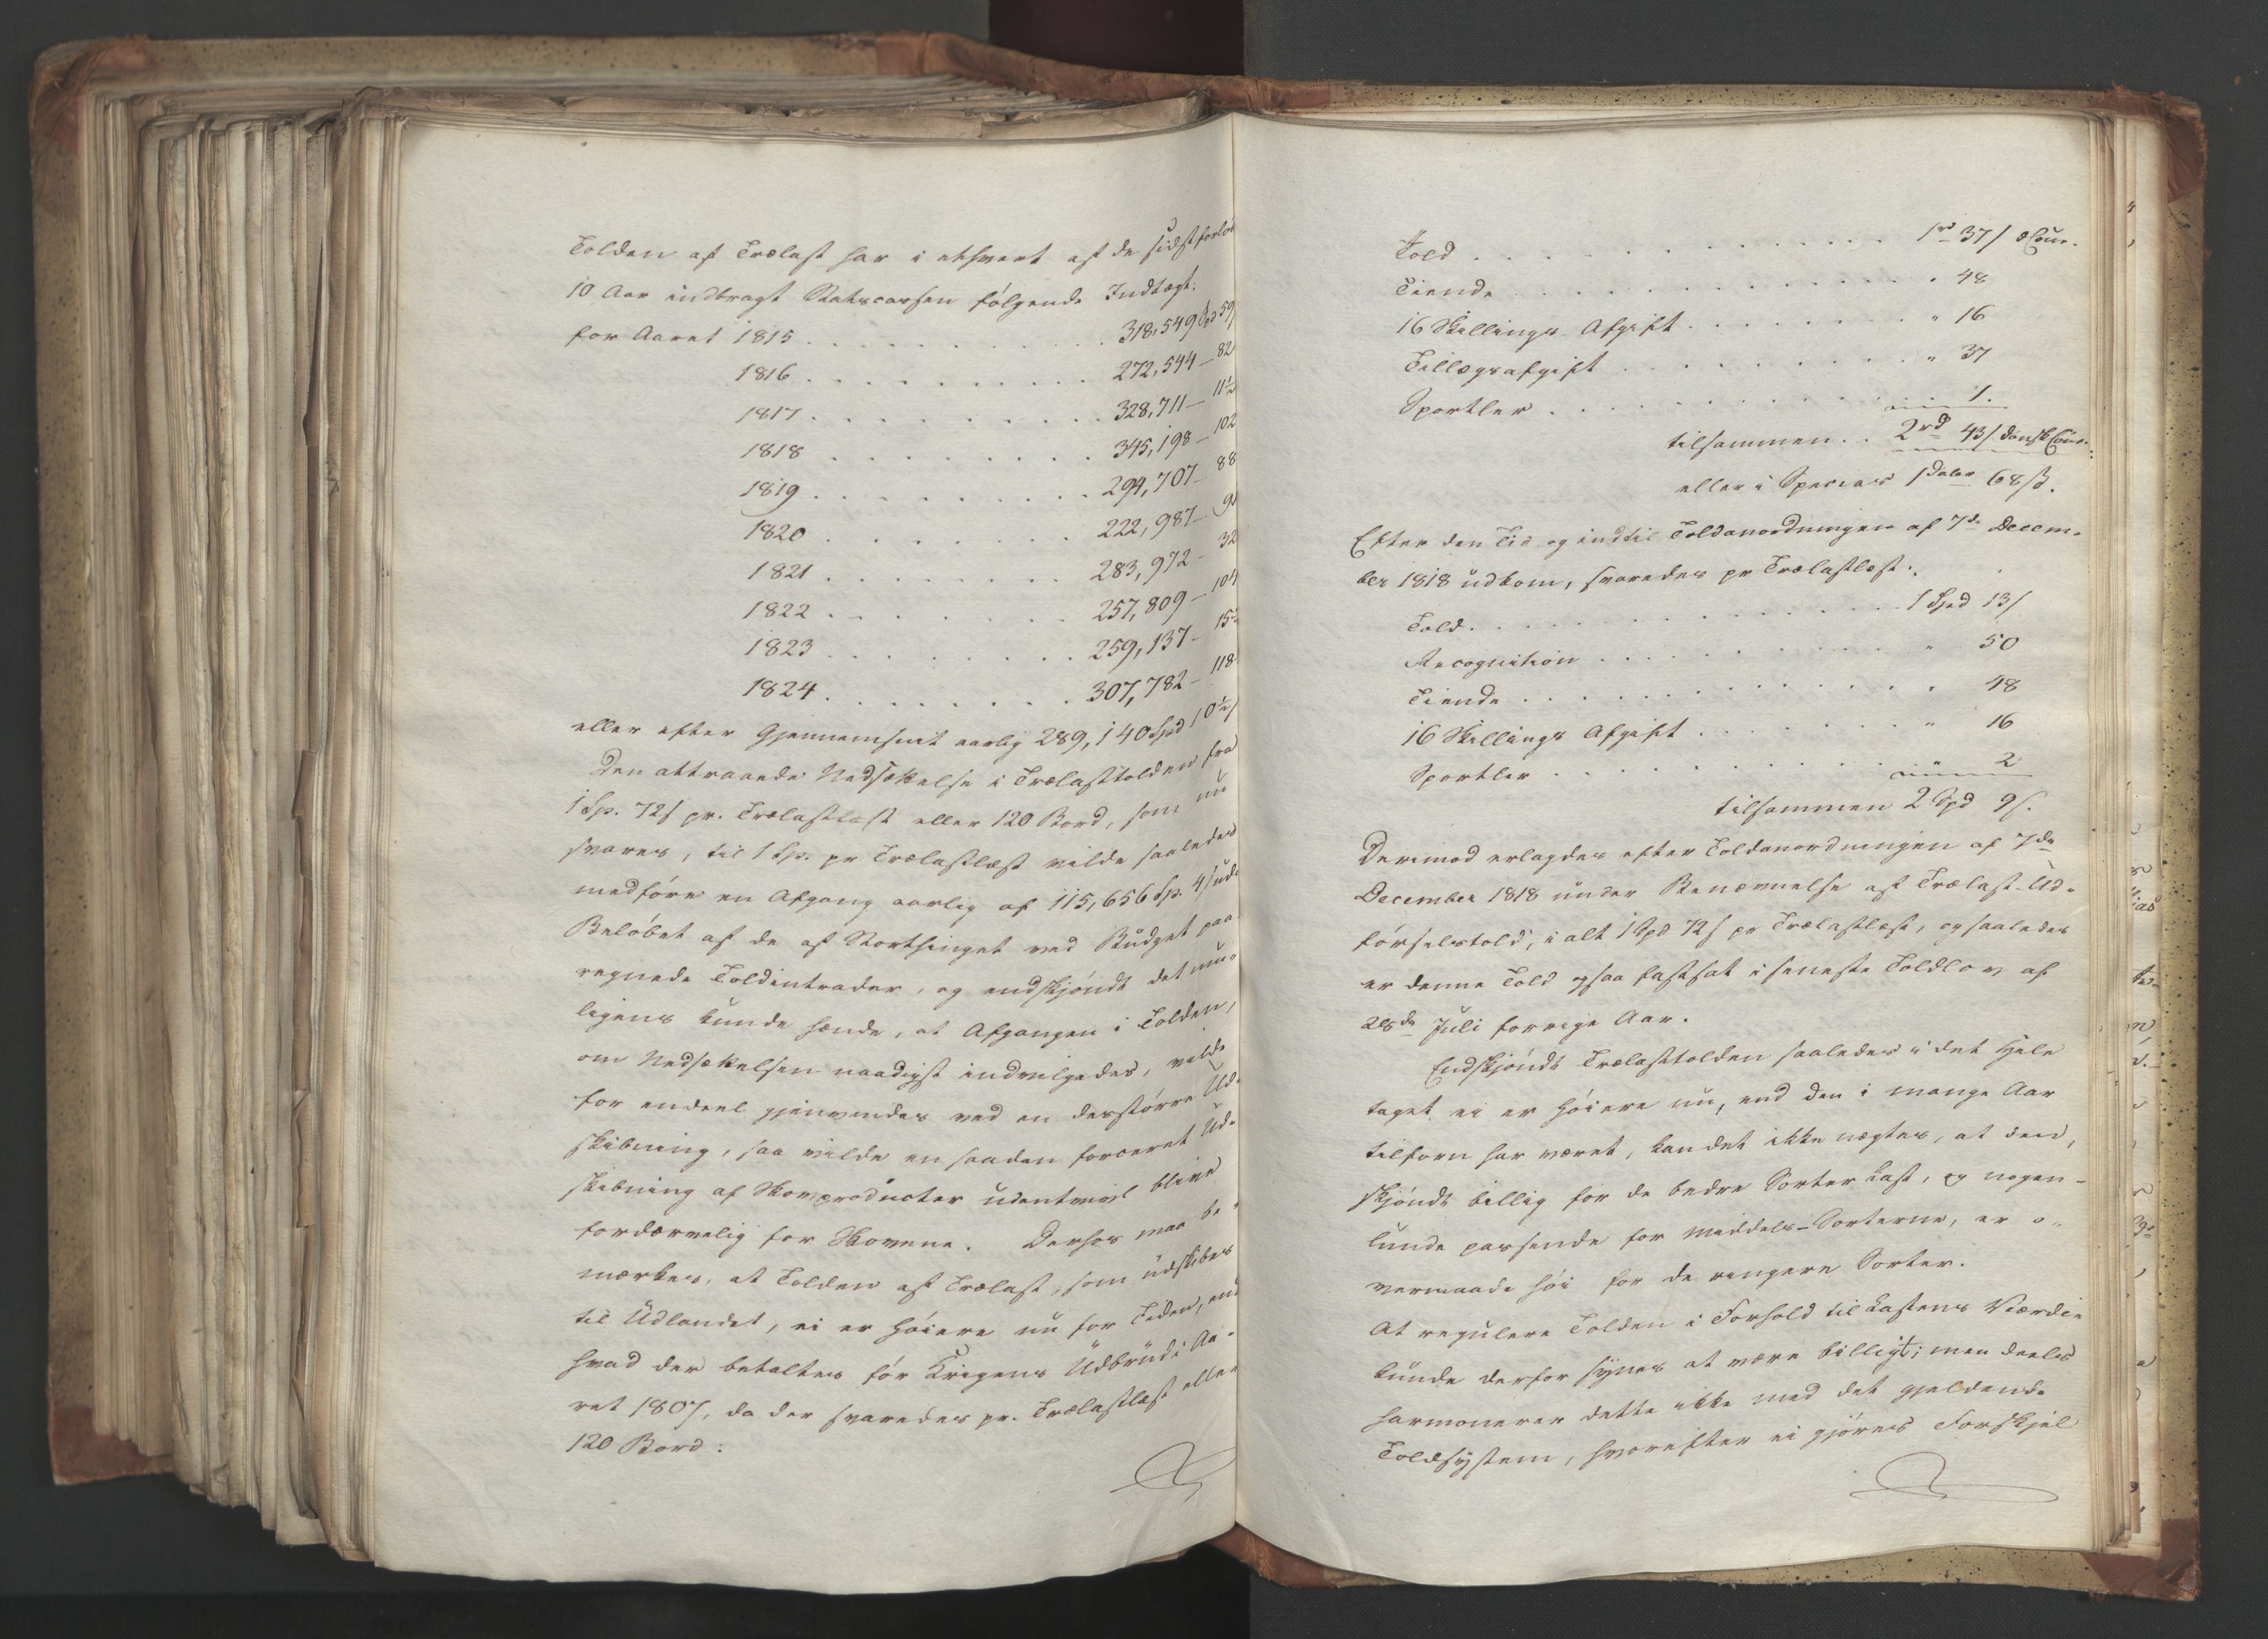 Tolden af Trælast har i ethvert af de sidstforløb
10 Aar indbragt Statscassen følgende Indtægt:
for Aaret 1815 . . . . . . . . . . 318,549 Spd 59
1816 . . . . . . . . . . 272,544 – 82
1817 . . . . . . . . . . 328,711 – 11½
1818 . . . . . . . . . . 345,198 – 102
1819 . . . . . . . . . . 294,707 – 88
1820 . . . . . . . . 222,987 –
1821 . . . . . . . . 283,972 – 32
1822 . . . . . . . . 257,809 – 104
1823 . . . . . . . . 259,137 – 15
1824 . . . . . . . . 307,782 – 118
eller efter Gjennemsnit aarlig 289,140 Spd 10½
Den attraaede Nedsættelse i Trælasttolden fra
1 Sp. 72 s pr. Trælastlæst eller 120 Bord, som nu
svares, til 1 Sp. pr Trælastlæst vilde saaledes
medføre en Afgang aarlig af 115,656 Sp. 4 s
Beløbet af de af Storthinget ved Budget paa
regnede Toldintrader, og endskjøndt det mu-
ligens kunde hænde, at Afgangen i Tolden,
om Nedsættelsen naadigst indvilgedes, vilde
for endeel gjenvindes ved en desstørre Ud-
skibning, saa vilde en saadan forceret Ud-
skibning af Skovproducter udentvivl blive
fordærvelig for Skovene. Derhos maa be-
mærkes, at Tolden af Trælast, som udskibes
til Udlandet, ei er høiere nu for Tiden, end
hvad der betaltes før Krigens Udbrud i Aa-
ret 1807, da der svaredes pr. Trælastlæst eller
120 Bord:
Told . . . . . . . . . . . . . . 1 rd 37 s d Cour.
Tiende . . . . . . . . . . . . . " 48
16 Skillings Afgift . . . . . . . . " 16
Tillægsafgift . . . . . . . . . " 37
Sportler . . . . . . . . . . . 1.
tilsammen . . 2 rd 43 s dansk Cour.
eller i Species 1 Daler 68 ß.
Efter den Tid og indtil Toldanordningen af 7de Decem-
ber 1818 udkom, svaredes pr Trælastlæst:
Told . . . . . . . . . . . . . . 1 Spd 13 s
Recognition . . . . . . . . . . " 50
Tiende . . . . . . . . . . . . . 48
16 Skillings Afgift . . . . . . . " 16
Sportler . . . . . . . . . . 2
tilsammen 2 Spd 9 s.
Derimod erlagdes efter Toldanordningen af 7de
December 1818 under Benævnelse af Trælast-Ud-
førselstold, i alt 1 Spd 72 s pr Trælastlæst, og saaledes
er denne Told ogsaa fastsat i seneste Toldlov af
28de Juli forrige Aar.
Endskjøndt Trælasttolden saaledes i det Hele
taget ei er høiere nu, end den i mange Aar
tilforn har været, kan det ikke nægtes, at den,
skjøndt billig for de bedre Sorter Last, og nogen-
lunde passende for Middels-Sorterne, er o-
vermaade høi for de ringere Sorter.
At regulere Tolden i Forhold til Lastens Værdie
kunde derfor synes at være billigt; men deels
harmonerer dette ikke med det gjeldende
Toldsystem, hvorefter ei gjøres Forskjel